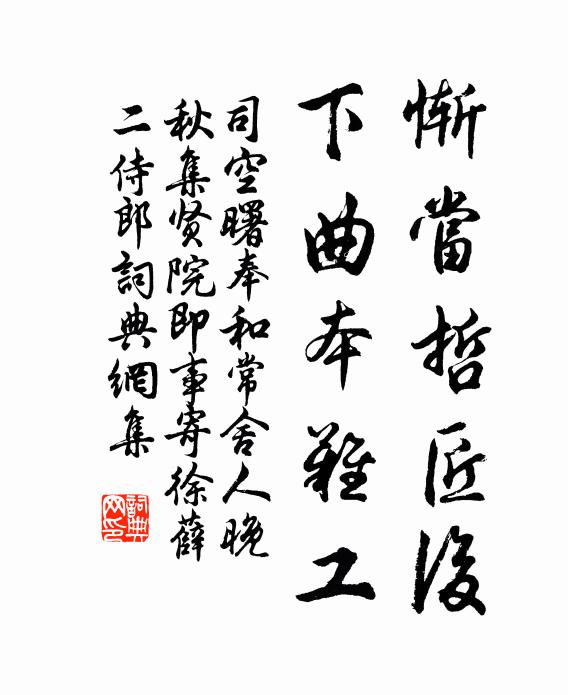 慚當哲匠後
下曲本難工
司空曙奉和常舍人晚
秋集贤院即事寄徐薛
二侍郎詞典網集
詞典
网印